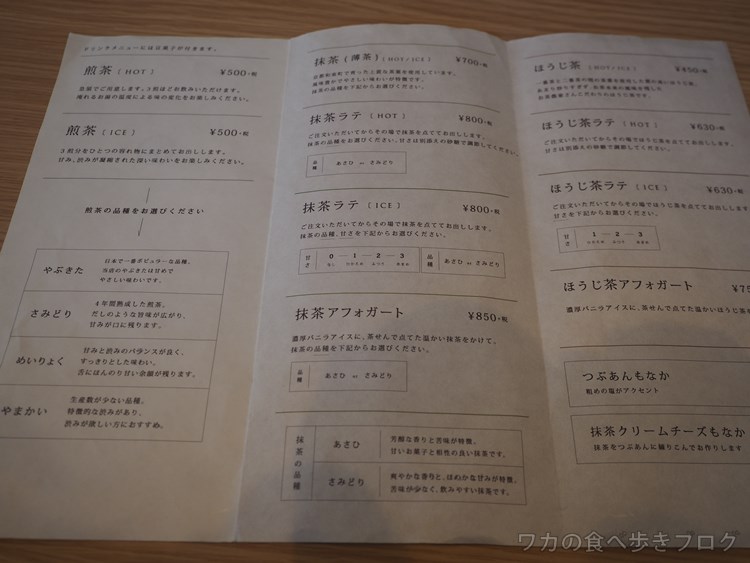 ドリンクメニューには豆菓子が付きます。
煎茶 ( HOT ) ¥500+税
急須でご用意します。3煎ほどお飲みいただけます。
淹れるお湯の温度による味の変化をお楽しみください。
煎茶 ( ICE ) ¥500+税
3煎分をひとつの容れ物にまとめてお出しします。
甘み、渋みが凝縮された深い味わいをお楽しみください。
煎茶の品種をお選びください
やぶきた
日本で一番ポピュラーな品種。
当店のやぶきたは甘めで
やさしい味わいです。
さみどり
4年間熟成した煎茶。
だしのような旨味が広がり、
甘みが口に残ります。
めいりょく
甘みと渋みのバランスが良く、
すっきりとした味わい。
舌にほんのり甘い余韻が残ります。
やまかい
生産数が少ない品種。
特徴的な渋みがあり、
渋みが欲しい方におすすめ。
抹茶 (薄茶) ( HOT / ICE ) ¥700+税
抹茶の品種を下記からお選びください。
抹茶ラテ ( HOT ) ¥800+税
ご注文いただいてからその場で抹茶を点ててお出しします。
抹茶の品種をお選びください。甘さは別添えの砂糖で調節してください。
品種 あさひ or さみどり
抹茶ラテ ( ICE ) ¥800+税
ご注文いただいてからその場で抹茶を点ててお出しします。
抹茶の品種、甘さを下記からお選びください。
甘さ 0 — 1 — 2 — 3
品種 あさひ or さみどり
抹茶アフォガート ¥850+税
濃厚バニラアイスに、茶せんで点てた温かい抹茶をかけて。
抹茶の品種を下記からお選びください。
品種 あさひ or さみどり
抹茶の品種
あさひ
芳醇な香りと苦味が特徴。
甘いお菓子と相性の良い抹茶です。
さみどり
爽やかな香りと、ほのかな甘みが特徴。
苦味が少なく、飲みやすい抹茶です。
ほうじ茶 ( HOT / ICE ) ¥450+税
ほうじ茶ラテ ( HOT ) ¥630+税
ご注文いただいてからその場でほうじ茶を点ててお出しします。
甘さは別添えの砂糖で調節してください。
ほうじ茶ラテ ( ICE ) ¥630+税
ご注文いただいてからその場でほうじ茶を点ててお出しします。
甘さを下記からお選びください。
甘さ 1 — 2 — 3
ほうじ茶アフォガート ¥75
濃厚バニラアイスに、茶せんで点てた温かいほうじ茶を
つぶあんもなか
粗めの塩がアクセント
抹茶クリームチーズもなか
抹茶をつぶあんに練りこんでお作りします
ワカの食べ歩きブログ